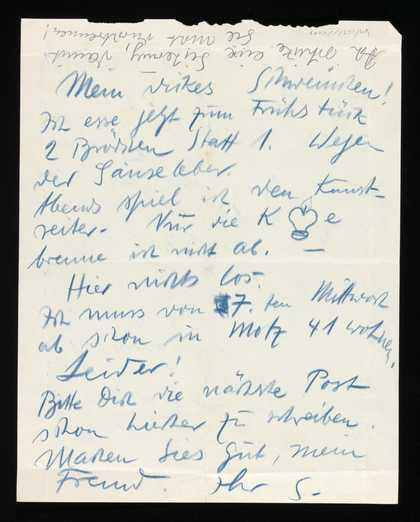 Ich schicke eine Zeichnung, damit
Sie nicht
Mein dickes Schweinchen!
Ich esse jetzt zum Frühstück
2 Brödchen statt 1. Wegen
der Gänseleber.
Abends spiel ich den Kunst-
reiter. Nur die K e
brenne ich nicht ab. —
Hier nichts los.
Ich muss von 7. ten Mittwoch
ab schon in Motz 41 wohnen.
Leider!
Bitte Dich die nächste Post
schon hierher zu schreiben.
Machen Sies gut, mein
Freund. Ihr S-